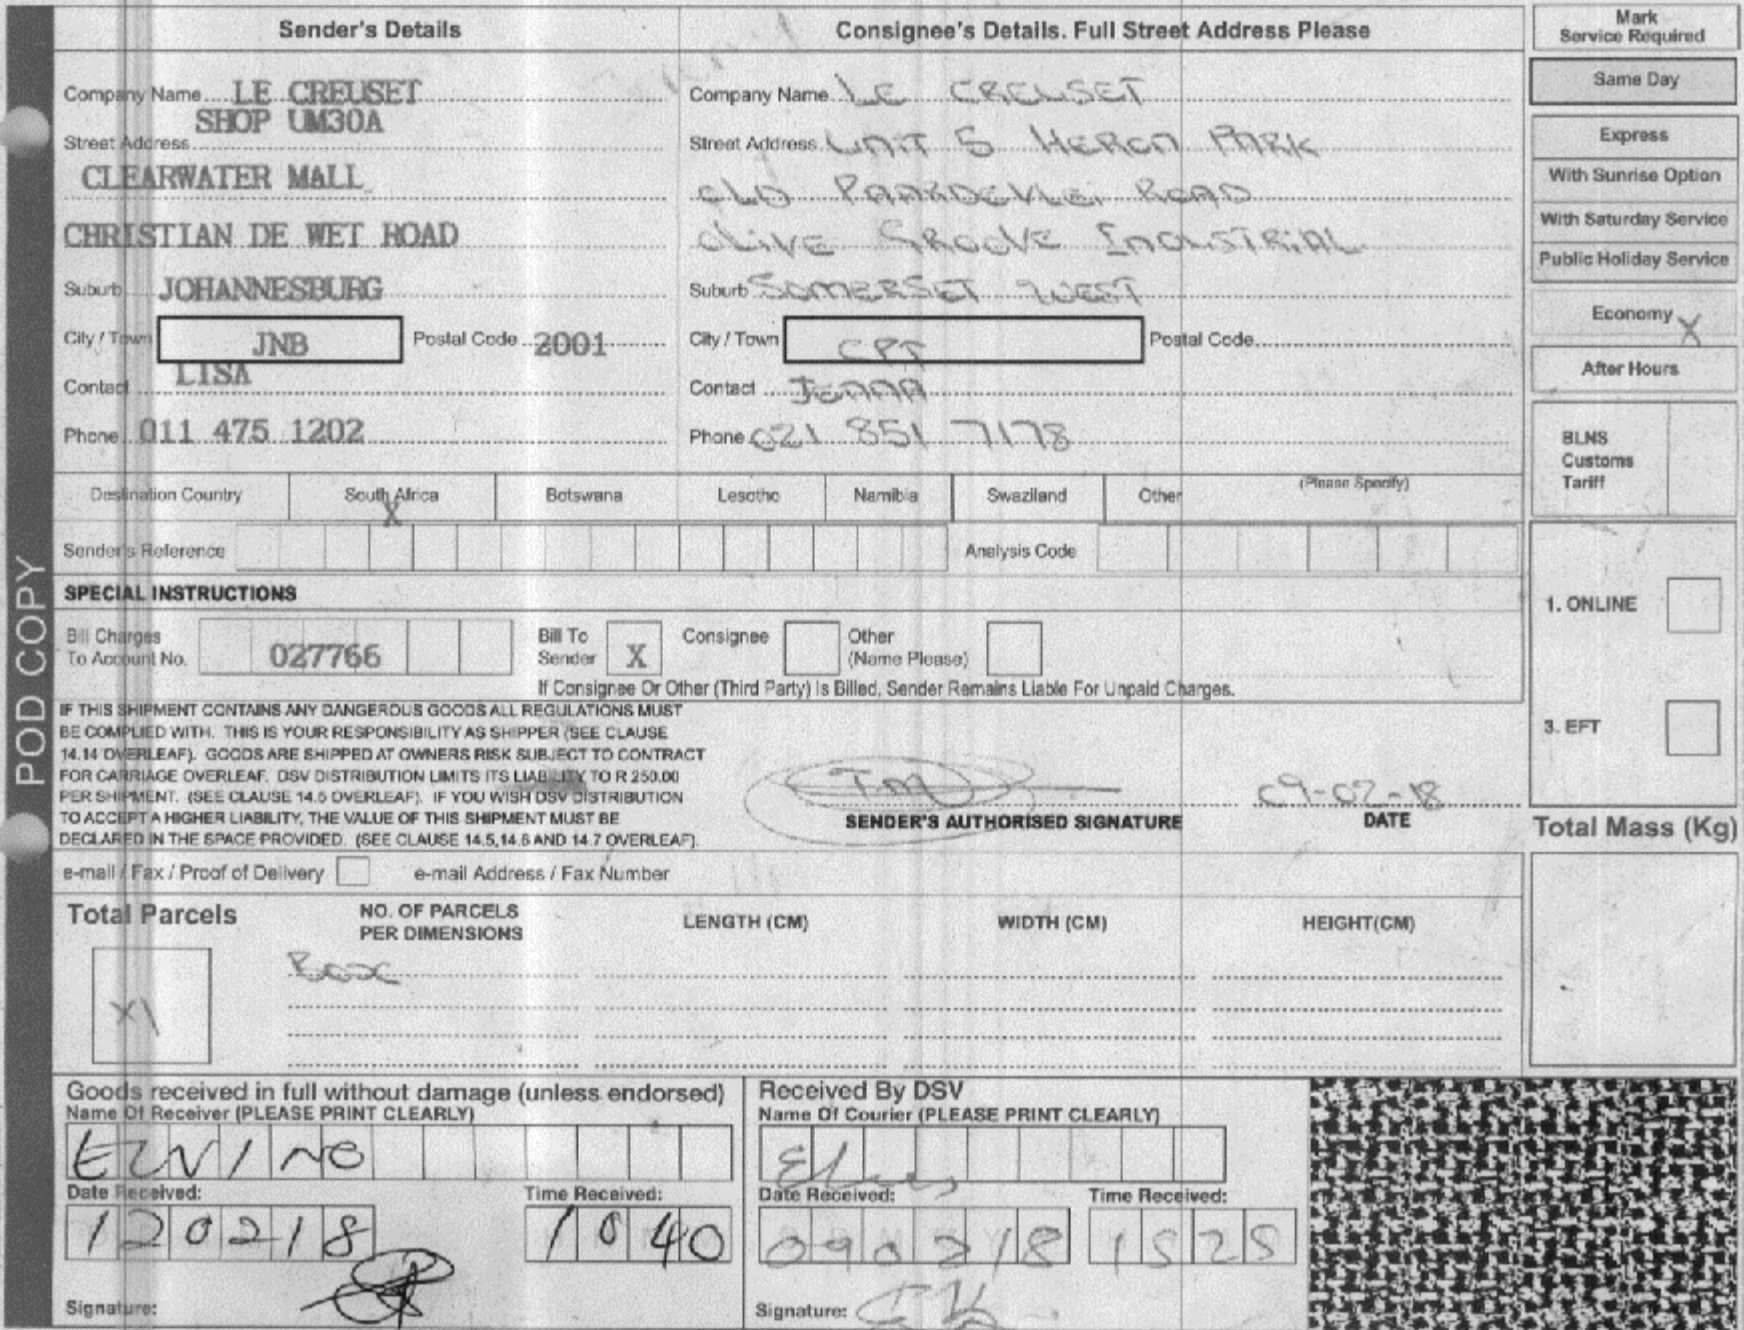 Sender's Details
Consignee's Details. Full Street Address Please
Mark
Service Required
Company Name LE CREUSET
SHOP UM30A
Street Address
CLEARWATER MALL
CHRISTIAN DE WET ROAD
Suburb JOHANNESBURG
City / Town JNB Postal Code 2001
Contact LISA
Phone 011 475 1202
Company Name LE CREUSET
Street Address UNIT 5 HERON PARK
OLD PAARDEVLEI ROAD
OLIVE GROOVE INDUSTRIAL
Suburb SOMERSET WEST
City / Town CPT Postal Code
Contact JENNA
Phone 021 851 7178
Same Day
Express
With Sunrise Option
With Saturday Service
Public Holiday Service
Economy X
After Hours
BLNS
Customs
Tariff
Destination Country South Africa Botswana Lesotho Namibia Swaziland Other (Please Specify)
X
Sender's Reference Analysis Code
SPECIAL INSTRUCTIONS
Bill Charges
To Account No. 027766
Bill To
Sender X
Consignee
Other
(Name Please)
If Consignee Or Other (Third Party) Is Billed, Sender Remains Liable For Unpaid Charges.
1. ONLINE
3. EFT
POD COPY
IF THIS SHIPMENT CONTAINS ANY DANGEROUS GOODS ALL REGULATIONS MUST
BE COMPLIED WITH. THIS IS YOUR RESPONSIBILITY AS SHIPPER (SEE CLAUSE
14.14 OVERLEAF). GOODS ARE SHIPPED AT OWNERS RISK SUBJECT TO CONTRACT
FOR CARRIAGE OVERLEAF. DSV DISTRIBUTION LIMITS ITS LIABILITY TO R 250.00
PER SHIPMENT. (SEE CLAUSE 14.5 OVERLEAF). IF YOU WISH DSV DISTRIBUTION
TO ACCEPT A HIGHER LIABILITY, THE VALUE OF THIS SHIPMENT MUST BE
DECLARED IN THE SPACE PROVIDED. (SEE CLAUSE 14.5,14.6 AND 14.7 OVERLEAF).
T.M 09-02-18
SENDER'S AUTHORISED SIGNATURE DATE
Total Mass (Kg)
e-mail / Fax / Proof of Delivery e-mail Address / Fax Number
Total Parcels
NO. OF PARCELS
PER DIMENSIONS
LENGTH (CM) WIDTH (CM) HEIGHT(CM)
Box
X1
Goods received in full without damage (unless endorsed)
Name Of Receiver (PLEASE PRINT CLEARLY)
ELVINO
Date Received: Time Received:
120218 1040
Signature:
Received By DSV
Name Of Courier (PLEASE PRINT CLEARLY)
Date Received: Time Received:
090218 1525
Signature: